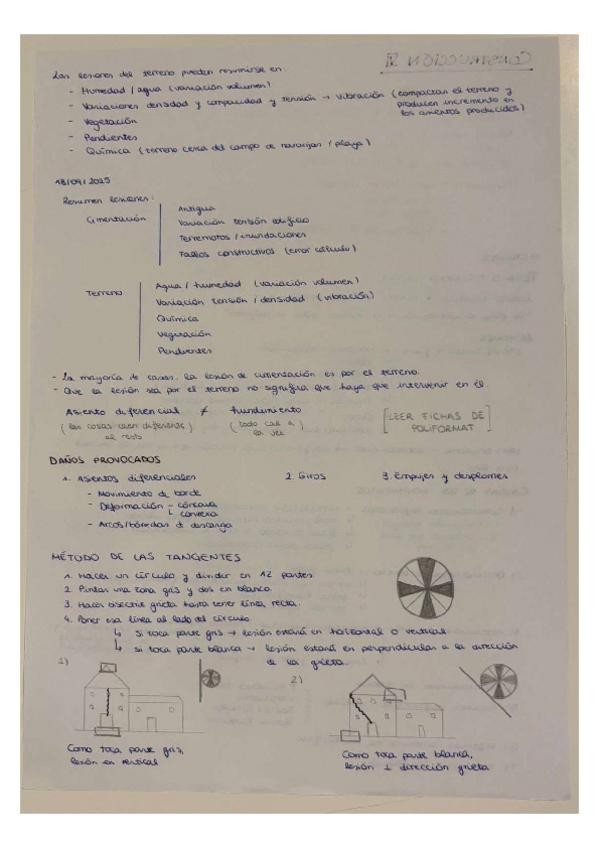 CONSTRUCCIÓN IV
Las lesiones del terreno pueden resumirse en:
- Humedad / agua (variación volumen)
- Variaciones densidad y compacidad y tensión → vibración (compactan el terreno y
producen incremento en
los asientos producidos)
- Vegetación
- Pendientes
- Química (terreno cerca del campo de naranjas / playa)
18/09/2025
Resumen lesiones:
Cimentación
Antigua
Variación tensión edificio
Terremotos / inundaciones
Fallos constructivos (error cálculo)
Terreno
Agua / humedad (variación volumen)
Variación tensión / densidad (vibración)
Química
Vegetación
Pendientes
- La mayoría de casos, la lesión de cimentación es por el terreno.
- Que la lesión sea por el terreno no significa que haya que intervenir en él.
Asiento diferencial ≠ hundimiento
(las cosas caen diferente al resto) (todo cae a la vez)
[LEER FICHAS DE POLIFORMAT]
DAÑOS PROVOCADOS
1. Asientos diferenciales 2. Giros 3. Empujes y desplomes
- Movimiento de borde
- Deformación - cóncava
convexa
- Arcos/bóvedas de descarga
MÉTODO DE LAS TANGENTES
1. Hacer un círculo y dividir en 12 partes.
2. Pintas una zona gris y dos en blanco.
3. Haces bisectriz grieta hasta tener línea recta.
4. Poner esa línea al lado del círculo
↳ Si toca parte gris → lesión estará en horizontal o vertical
↳ Si toca parte blanca → lesión estará en perpendicular a la dirección
de la grieta.
1)
2)
Como toca parte gris,
lesión en vertical
Como toca parte blanca,
lesión ⊥ dirección grieta